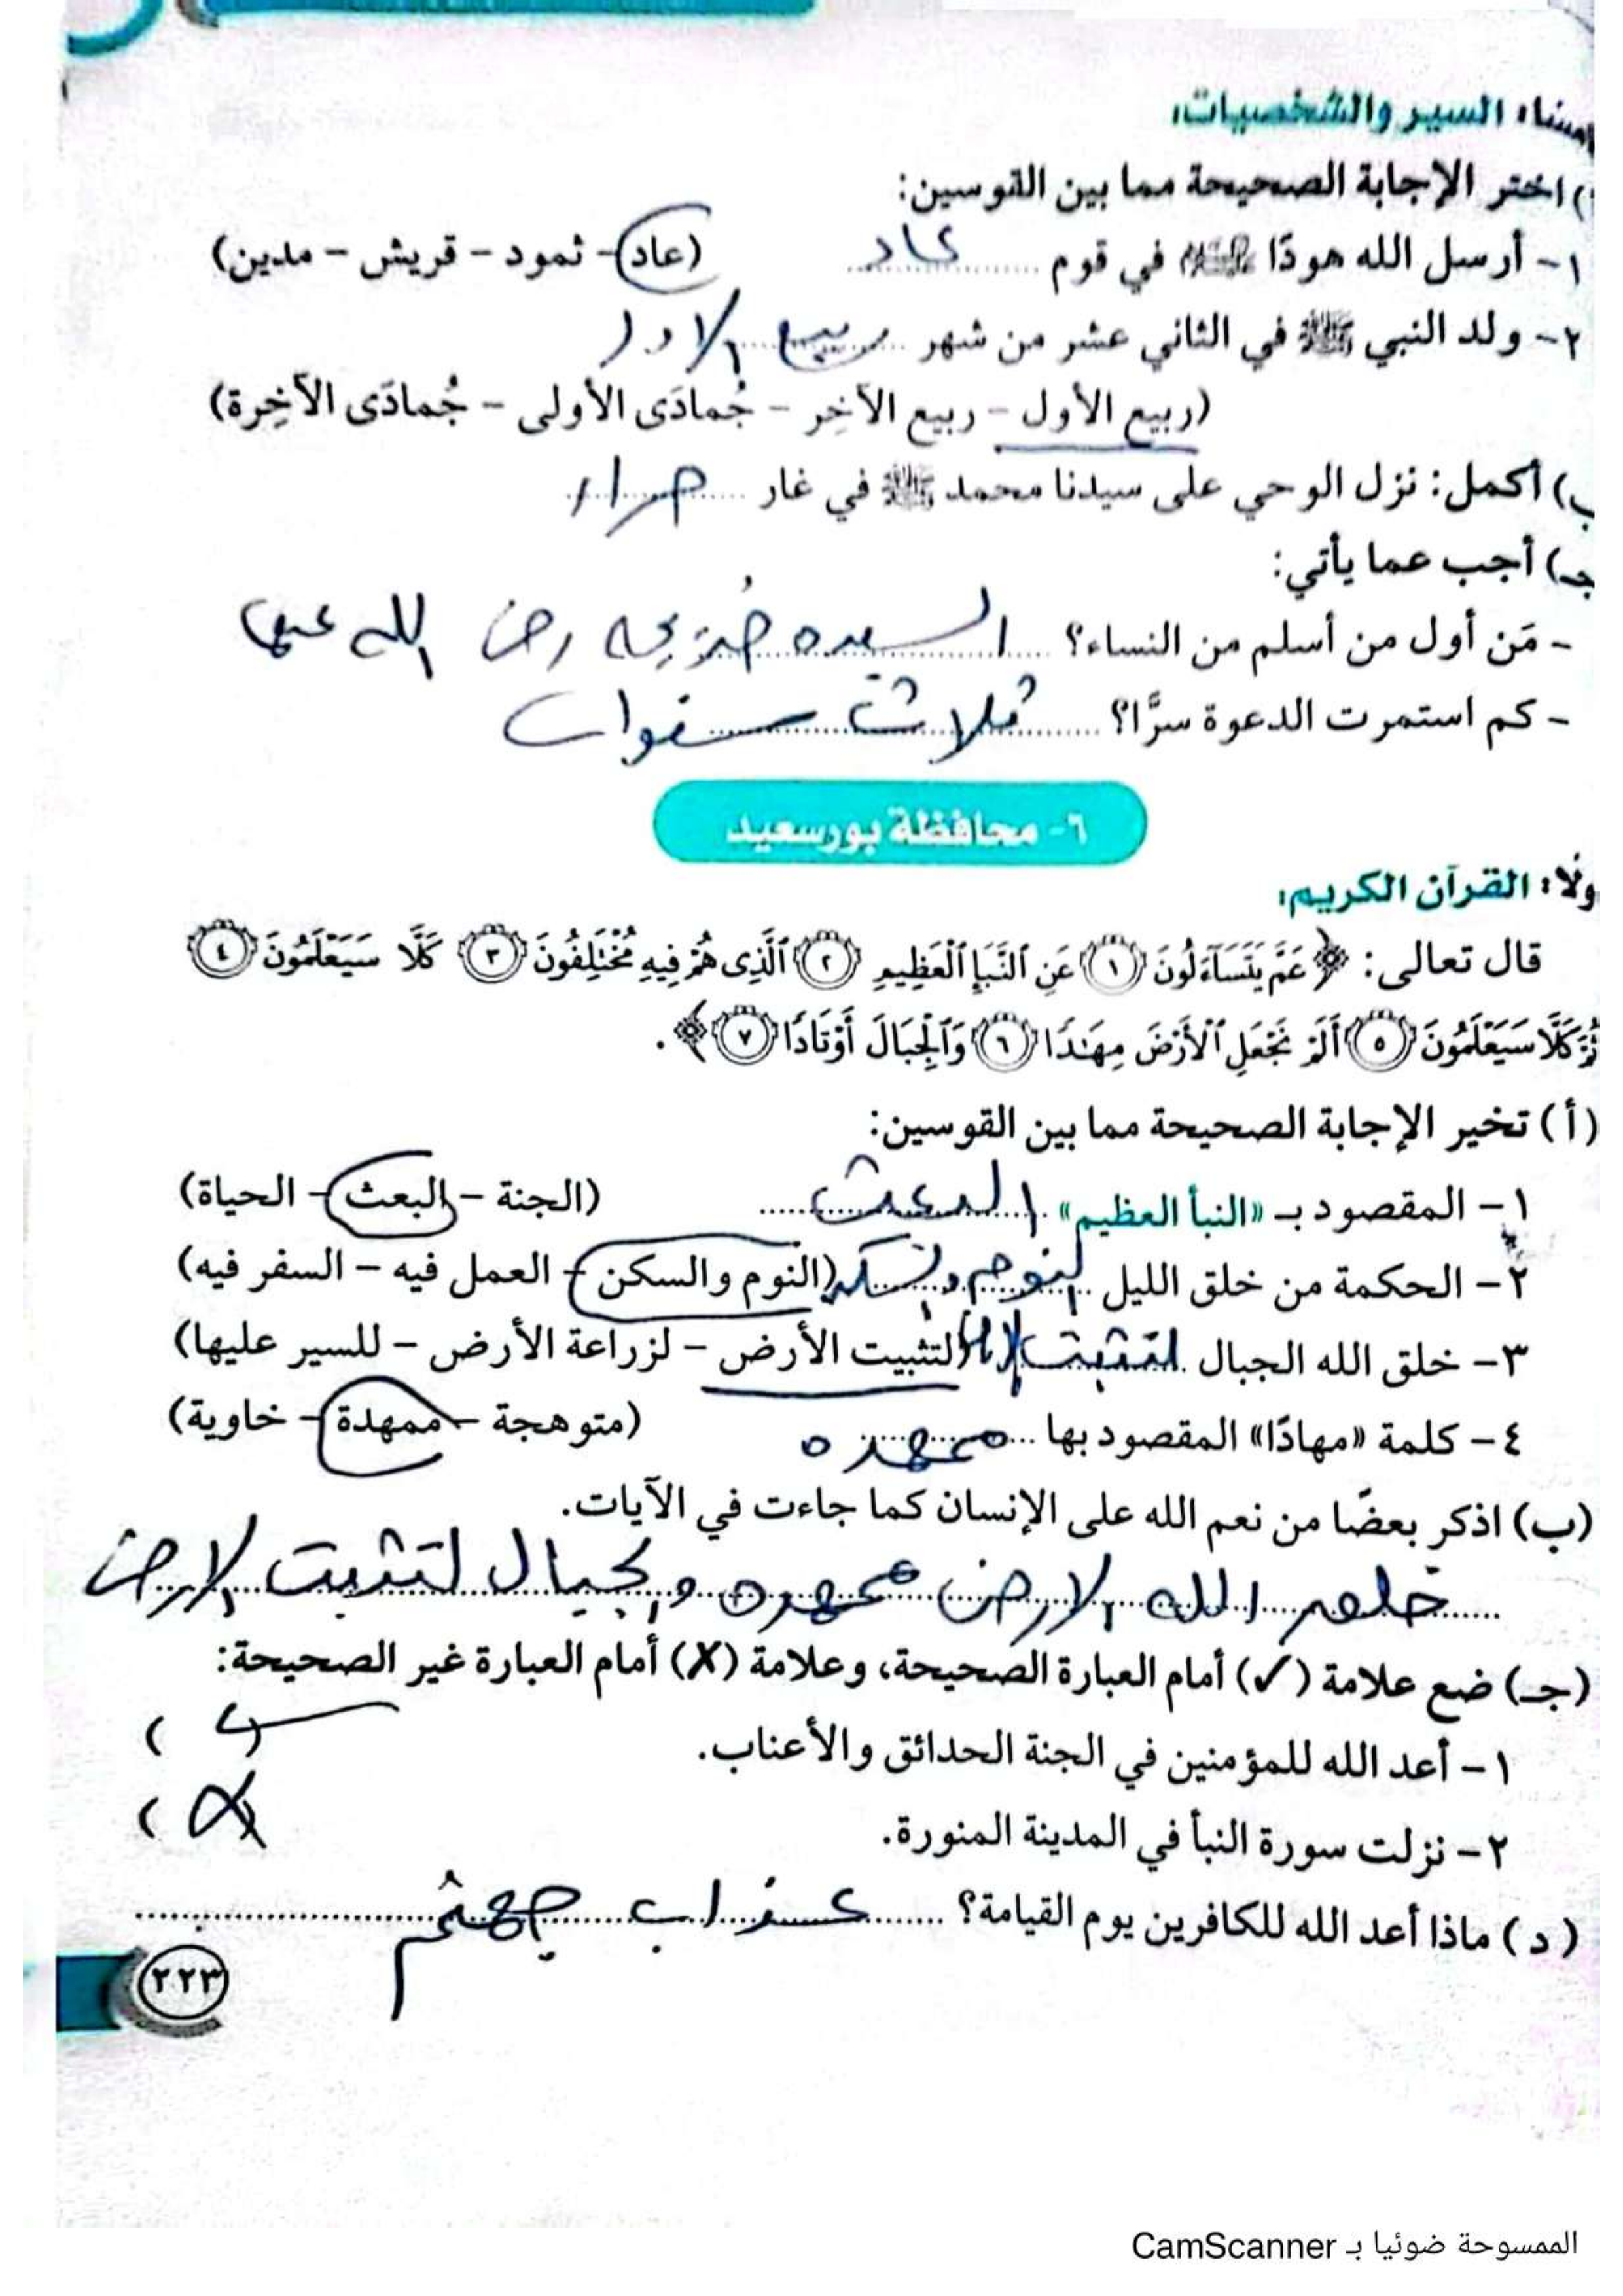 السير والشخصيات:
اختر الإجابة الصحيحة مما بين القوسين:
١- أرسل الله هودًا ﷺ في قوم عاد (عاد - ثمود - قريش - مدين)
٢- ولد النبي ﷺ في الثاني عشر من شهر ربيع الاول
(ربيع الأول - ربيع الآخِر - جُمادَى الأولى - جُمادَى الآخِرة)
ب) أكمل: نزل الوحي على سيدنا محمد ﷺ في غار حراء
جـ) أجب عما يأتي:
- مَن أول من أسلم من النساء؟ السيده خديجه رضى الله عنها
- كم استمرت الدعوة سرًّا؟ ثلاث سنوات
٦- محافظة بورسعيد
ولًا: القرآن الكريم:
قال تعالى: ﴿ عَمَّ يَتَسَآءَلُونَ ١ عَنِ ٱلنَّبَإِ ٱلْعَظِيمِ ٢ ٱلَّذِى هُمْ فِيهِ مُخْتَلِفُونَ ٣ كَلَّا سَيَعْلَمُونَ ٤
ثُمَّ كَلَّا سَيَعْلَمُونَ ٥ أَلَمْ نَجْعَلِ ٱلْأَرْضَ مِهَٰدًا ٦ وَٱلْجِبَالَ أَوْتَادًا ٧ ﴾ .
(أ) تخير الإجابة الصحيحة مما بين القوسين:
١- المقصود بـ «النبأ العظيم» البعث (الجنة - البعث - الحياة)
٢- الحكمة من خلق الليل النوم والسكن (النوم والسكن - العمل فيه - السفر فيه)
٣- خلق الله الجبال لتثبيت (لتثبيت الأرض - لزراعة الأرض - للسير عليها)
٤- كلمة «مهادًا» المقصود بها ممهده (متوهجة - ممهدة - خاوية)
(ب) اذكر بعضًا من نعم الله على الإنسان كما جاءت في الآيات.
خلق الله الارض ممهده والجبال لتثبت الارض
(جـ) ضع علامة (✓) أمام العبارة الصحيحة، وعلامة (✗) أمام العبارة غير الصحيحة:
١- أعد الله للمؤمنين في الجنة الحدائق والأعناب. (✓)
٢- نزلت سورة النبأ في المدينة المنورة. (✗)
(د) ماذا أعد الله للكافرين يوم القيامة؟ عذاب جهنم
٢٢٣
الممسوحة ضوئيا بـ CamScanner